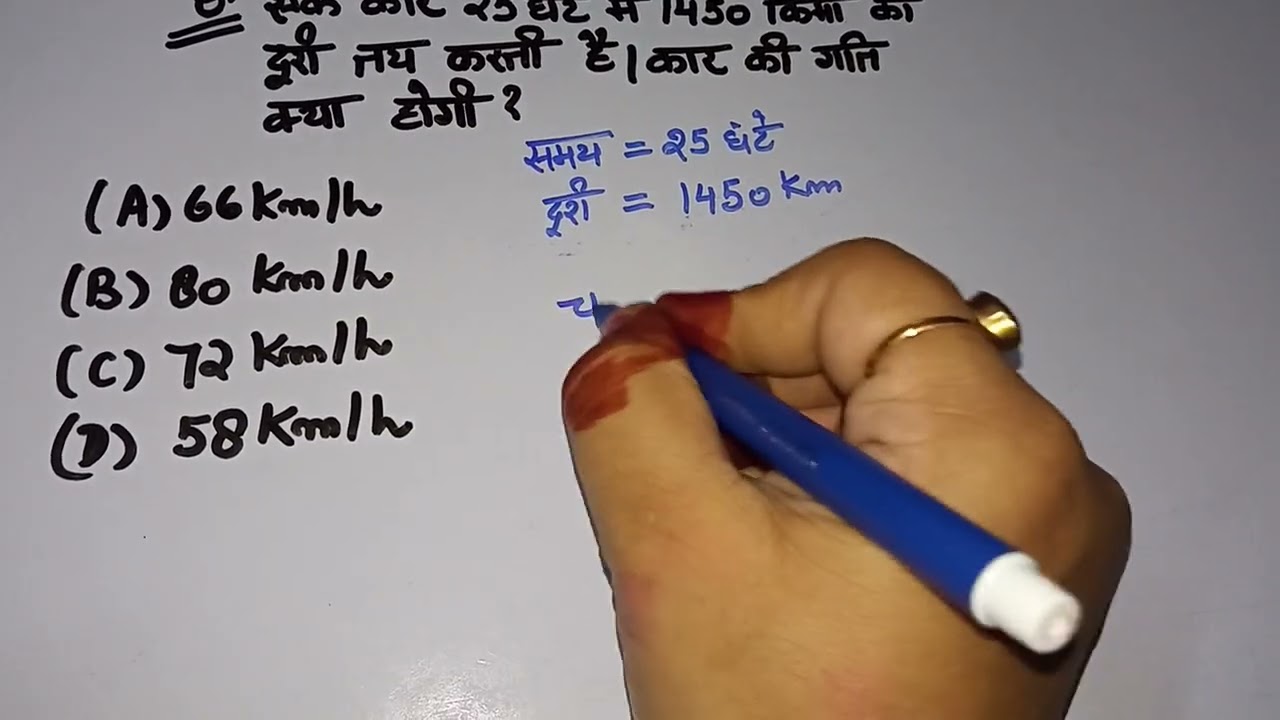 Q. एक कार 25 घंटे में 1450 किमी की
दूरी तय करती है। कार की गति
क्या होगी?
समय = 25 घंटे
दूरी = 1450 Km
(A) 66 Km/h
(B) 80 Km/h
(C) 72 Km/h
(D) 58 Km/h
च